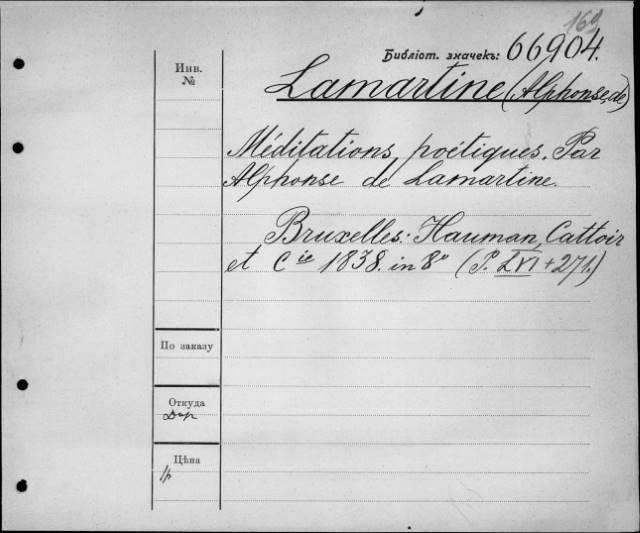 169
Библіот. значекъ: 66904.
Инв.
№
Lamartine (Alphonse de)
Méditations poétiques. Par
Alphonse de Lamartine.
Bruxelles: Hauman, Cattoir
et Cie 1838. in 8º (P. LVI + 271.)
По заказу
Откуда
Дар
Цѣна
1р